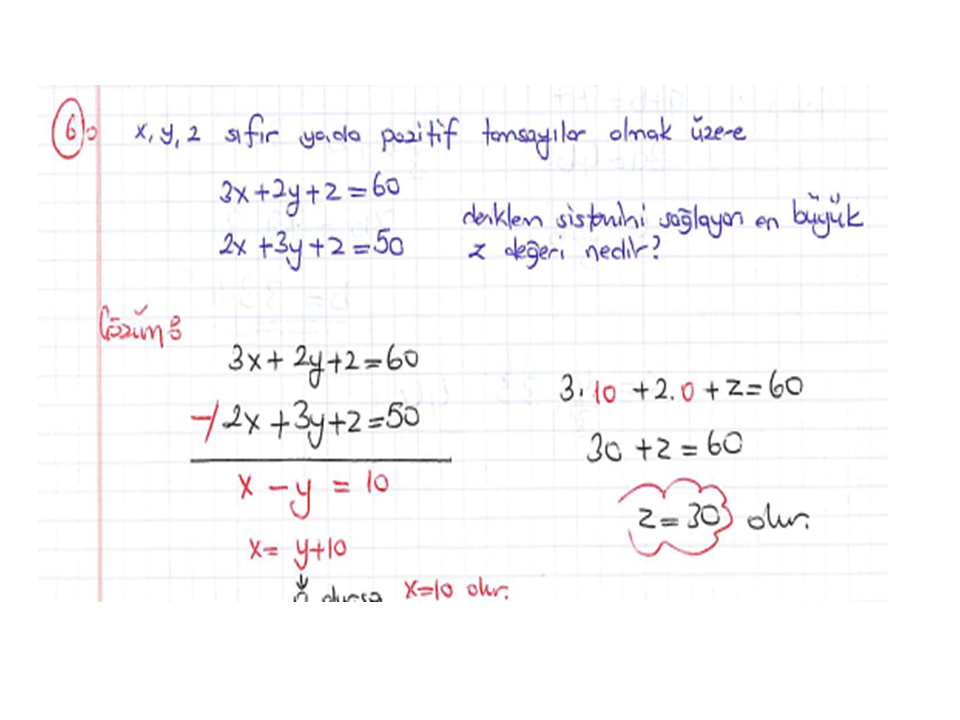 6)
x, y, z sıfır yada pozitif tamsayılar olmak üzere
3x+2y+z=60
2x+3y+z=50
denklem sistemini sağlayan en büyük
z değeri nedir?
Çözüm:
3x+2y+z=60
-/ 2x+3y+z=50
x-y=10
x=y+10
↓
0 olursa x=10 olur.
3.10+2.0+z=60
30+z=60
z=30 olur.